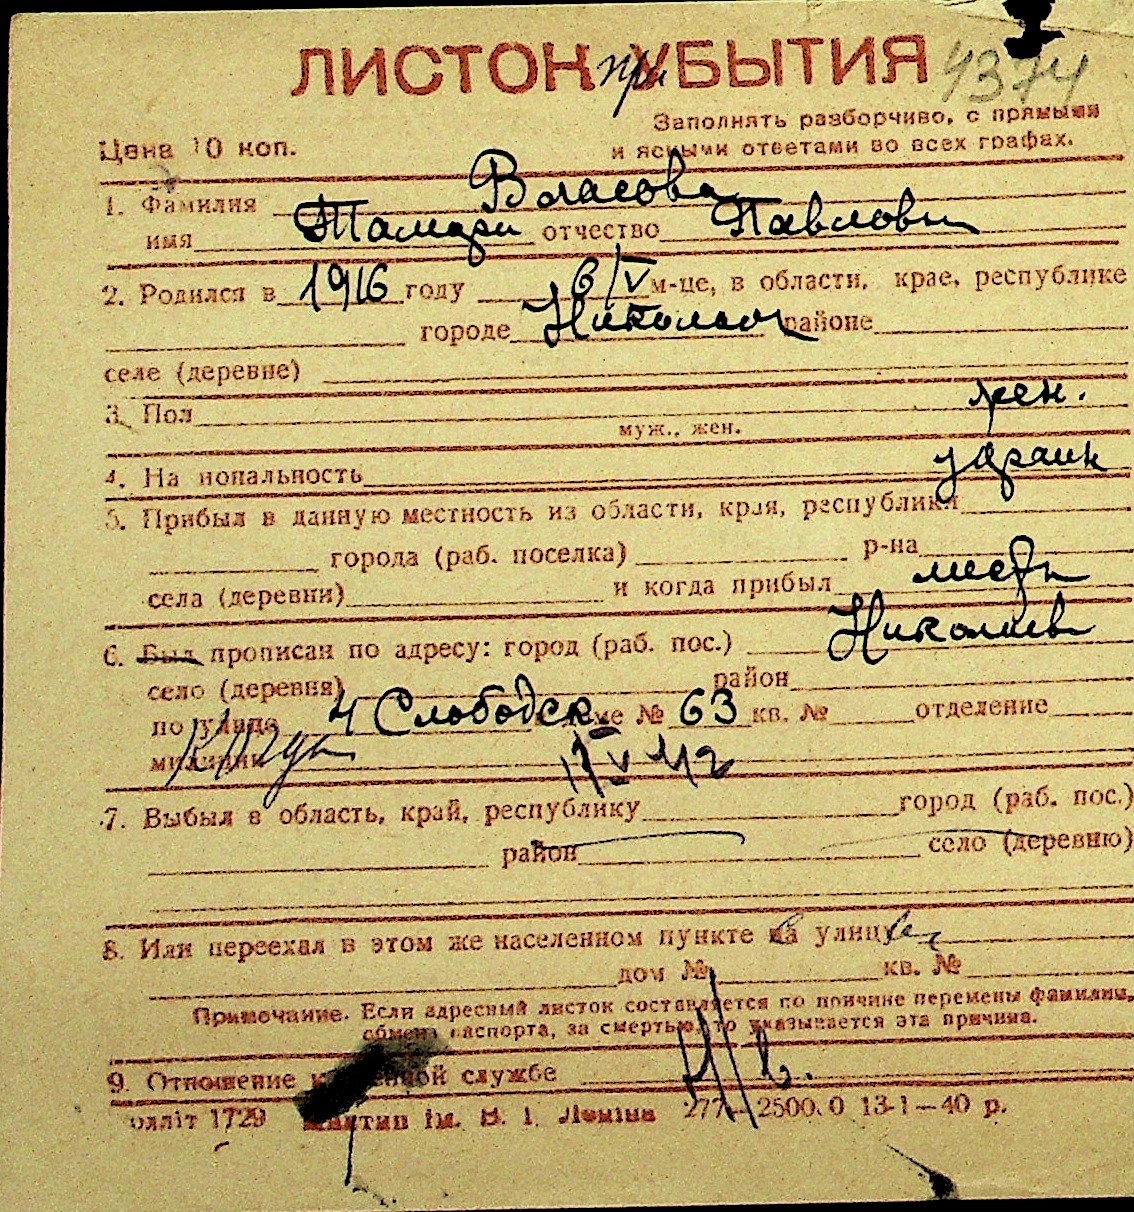 ЛИСТОК при УБЫТИЯ 4374
Цена 10 коп.
Заполнять разборчиво, с прямыми
и ясными ответами во всех графах.
1. Фамилия Власова
имя Тамара отчество Павловн
2. Родился в 1916 году 6/V м-це, в области, крае, республике
городе Николаев районе
селе (деревне)
3. Пол жен.
муж., жен.
4. На иопальность украин
5. Прибыл в данную местность из области, края, республики
города (раб. поселка) р-на
села (деревни) и когда прибыл местн
6. Был прописан по адресу: город (раб. пос.) Николаев
село (деревня) район
по улице 4 Слободск. доме № 63 кв. № отделение
милиции когда 17 V 42
7. Выбыл в область, край, республику город (раб. пос.)
район село (деревню)
8. Или переехал в этом же населенном пункте на улицу
дом № кв. №
Примечание. Если адресный листок составляется по причине перемены фамилии,
обмена паспорта, за смертью, то указывается эта причина.
9. Отношение к военной службе н/в.
ім. В. І. Леніна 277—2500.0 13-1—40 р.